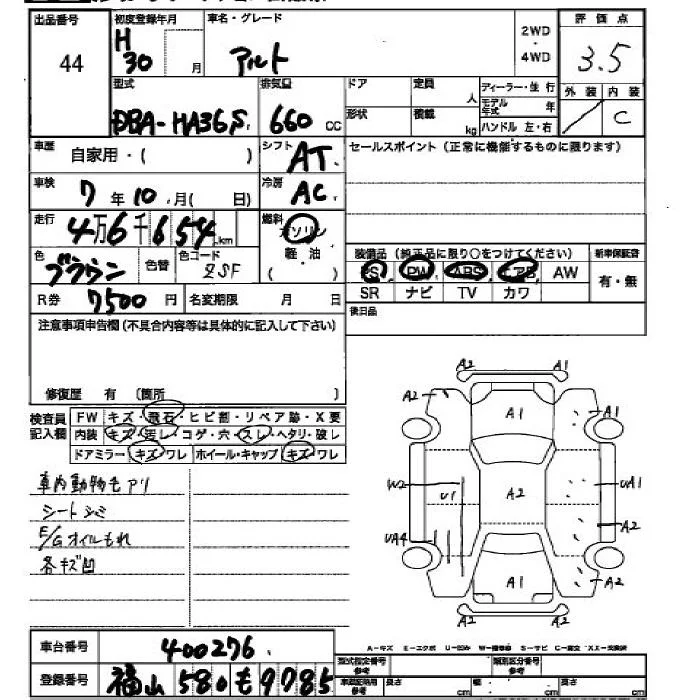 出品番号 初度登録年月 車名・グレード 2WD・4WD 評価点
44 H30 月 アルト 3.5
型式 排気量 ドア 定員 人 ディーラー・並行 外装 内装
DBA-HA36S 660 CC 形状 積載 kg モデル年式 年 C
ハンドル 左・右
車歴 自家用・( ) シフト AT セールスポイント(正常に機能するものに限ります)
車検 7年10月( 日) 冷房 AC
走行 4万6千654km 燃料 ガソリン
軽・油
( )
色 ブラウン 色替 色コード ZSF
装備品(純正品に限り○をつけてください) 新車保証書
PS PW ABS エアB AW 有・無
SR ナビ TV カワ
R券 7500円 名変期限 月 日 後日品
注意事項申告欄(不具合内容等は具体的に記入して下さい)
修復歴 有 〔箇所 〕
検査員記入欄
FW キズ・飛石・ヒビ割・リペア跡・X要
内装 キズ・汚レ・コゲ・穴・スレ・ヘタリ・破レ
ドアミラー キズ・ワレ ホイール・キャップ キズ・ワレ
車内動物毛アリ
シートシミ
E/Gオイルもれ
各キズ凹
A2 A1
A2 A1 A2
W2 U1 A2 UA1
UA4 A2
A1 A2
A2 A2
車台番号 400276
登録番号 福山 580 も 9785
A-キズ E-エクボ U-凹み W-補修跡 S-サビ C-腐立 XX-交換済
型式指定番号 参考 類別区分番号 参考
車検証記載 参考 長さ cm 幅 cm 高さ cm